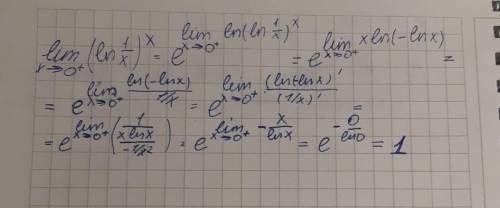 lim x→0⁺ (ln 1/x)^x = e^(lim x→0⁺ ln(ln 1/x)^x) = e^(lim x→0⁺ x ln(-lnx)) =
= e^(lim x→0⁺ ln(-lnx)/(1/x)) = e^(lim x→0⁺ (ln(-lnx))'/(1/x)') =
= e^(lim x→0⁺ ((1/(x lnx))/(-1/x²))) = e^(lim x→0⁺ -x/lnx) = e^(-0/ln0) = 1